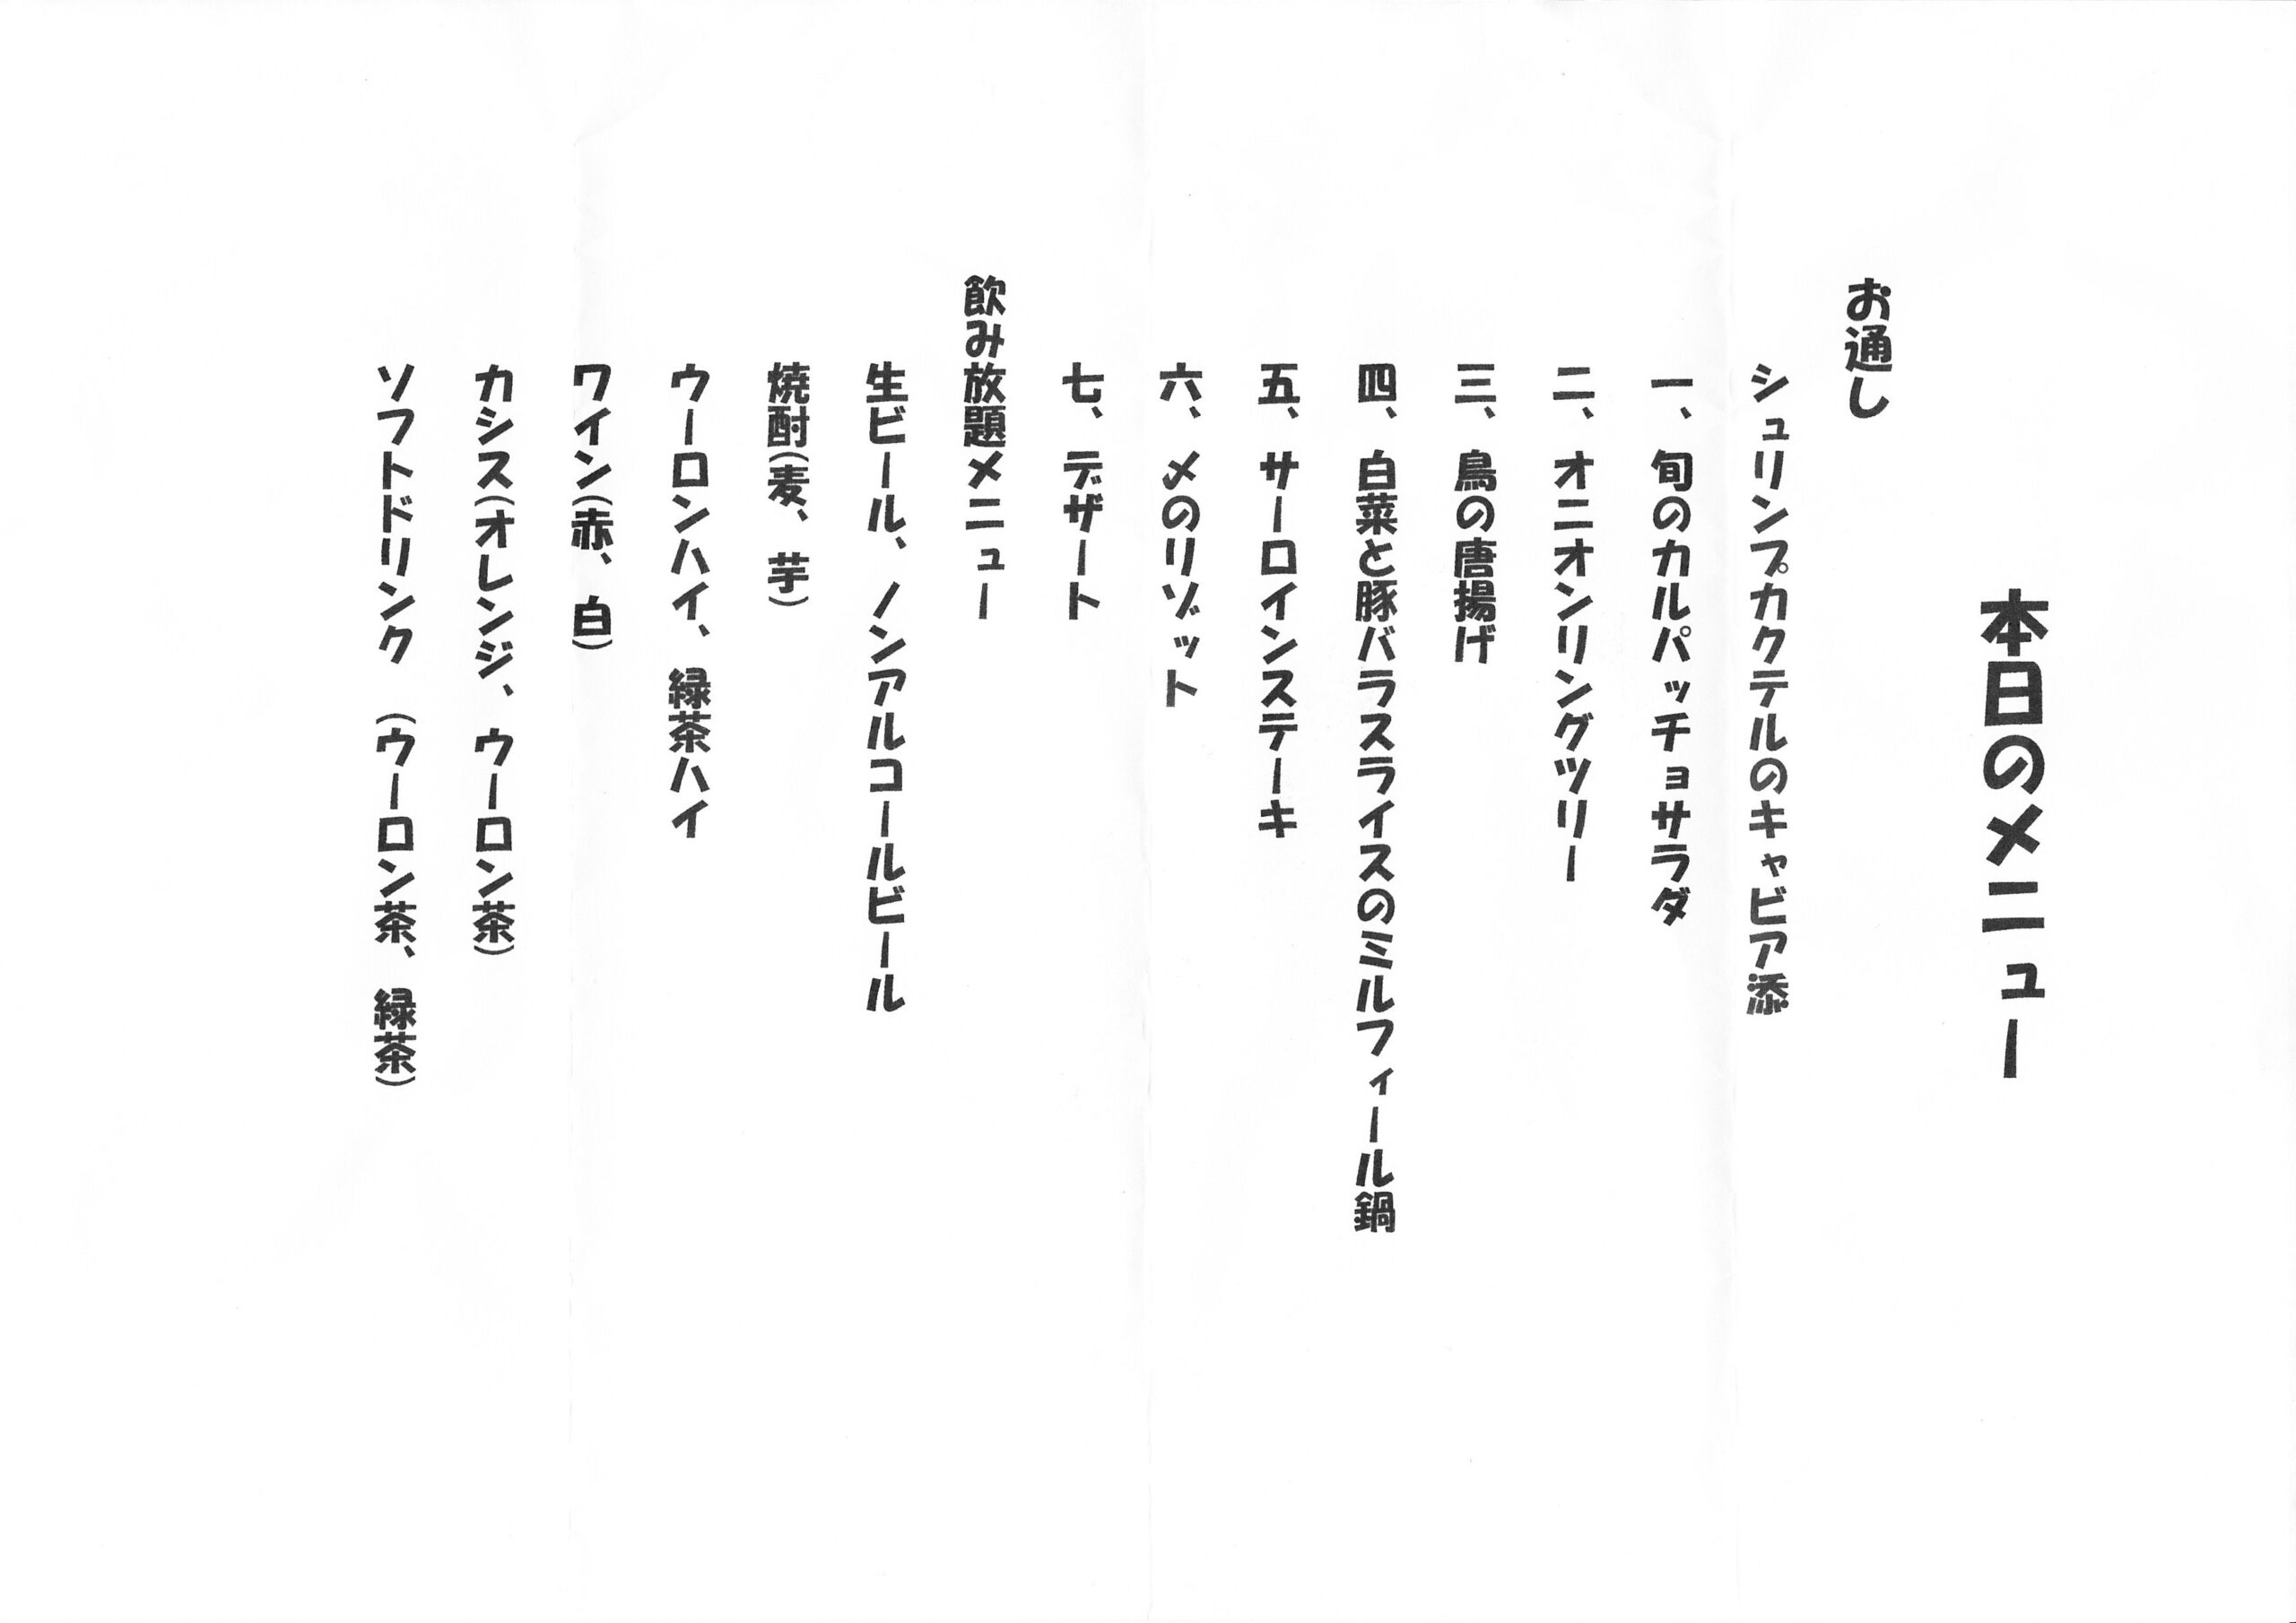 本日のメニュー
お通し
シュリンプカクテルのキャビア添
一、旬のカルパッチョサラダ
二、オニオンリングツリー
三、鳥の唐揚げ
四、白菜と豚バラスライスのミルフィール鍋
五、サーロインステーキ
六、〆のリゾット
七、デザート
飲み放題メニュー
生ビール、ノンアルコールビール
焼酎(麦、芋)
ウーロンハイ、緑茶ハイ
ワイン(赤、白)
カシス(オレンジ、ウーロン茶)
ソフトドリンク (ウーロン茶、緑茶)